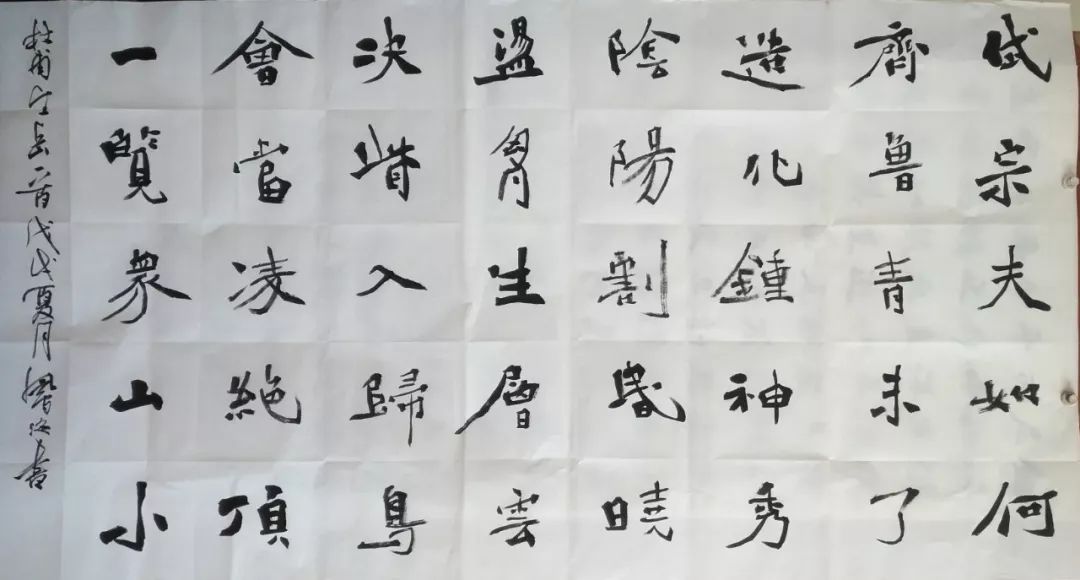 岱宗夫如何
齊鲁青未了
造化鍾神秀
陰陽割昬曉
盪胷生層雲
决眥入歸鳥
會當凌絶頂
一覽衆山小
杜甫望岳一首戊戌夏月書